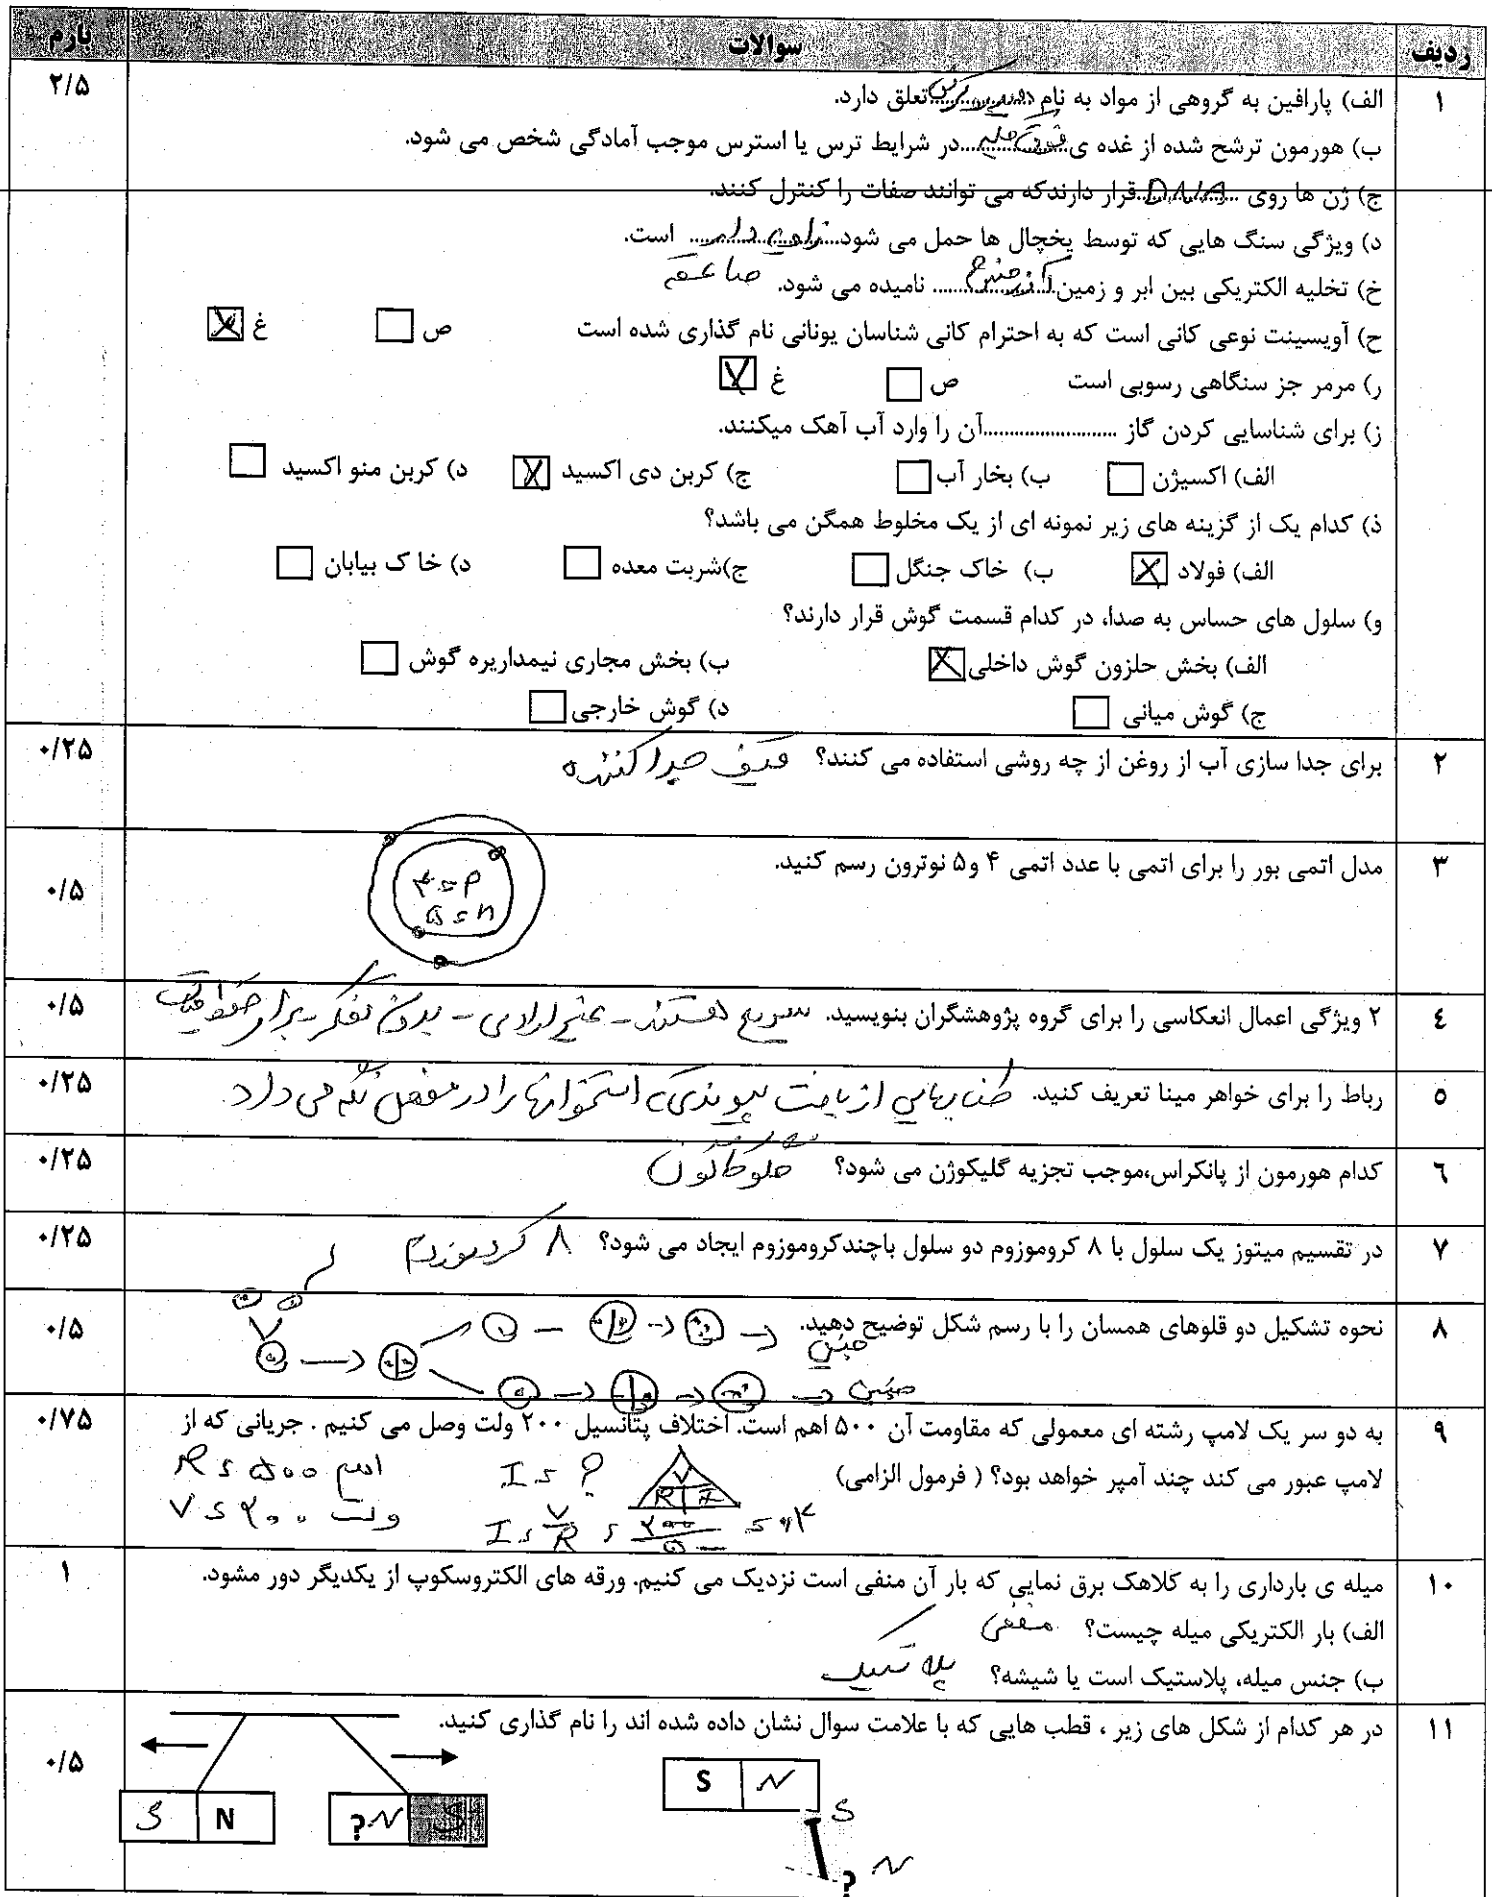 ردیف سوالات بارم
۱ الف) پارافین به گروهی از مواد به نام هیدروکربن تعلق دارد. ۲/۵
ب) هورمون ترشح شده از غده ی فوق کلیه در شرایط ترس یا استرس موجب آمادگی شخص می شود.
ج) ژن ها روی DNA قرار دارندکه می توانند صفات را کنترل کنند.
د) ویژگی سنگ هایی که توسط یخچال ها حمل می شود زاویه دار است.
خ) تخلیه الکتریکی بین ابر و زمین آذرخش نامیده می شود. صاعقه
ح) آویسینت نوعی کانی است که به احترام کانی شناسان یونانی نام گذاری شده است ص غ X
ر) مرمر جز سنگاهی رسوبی است ص غ X
ز) برای شناسایی کردن گاز ........................آن را وارد آب آهک میکنند.
الف) اکسیژن ب) بخار آب ج) کربن دی اکسید X د) کربن منو اکسید
ذ) کدام یک از گزینه های زیر نمونه ای از یک مخلوط همگن می باشد؟
الف) فولاد X ب) خاک جنگل ج)شربت معده د) خا ک بیابان
و) سلول های حساس به صدا، در کدام قسمت گوش قرار دارند؟
الف) بخش حلزون گوش داخلی X ب) بخش مجاری نیمدایره گوش
ج) گوش میانی د) گوش خارجی
۲ برای جدا سازی آب از روغن از چه روشی استفاده می کنند؟ قیف جدا کننده ۰/۲۵
۳ مدل اتمی بور را برای اتمی با عدد اتمی ۴ و۵ نوترون رسم کنید. ۰/۵
۴=p
۵=n
٤ ۲ ویژگی اعمال انعکاسی را برای گروه پژوهشگران بنویسید. سریع هستند - غیر ارادی - بدون تفکر - برای حفظ ۰/۵
٥ رباط را برای خواهر مینا تعریف کنید. طناب هایی از بافت پیوندی که استخوانها را در مفصل نگه می دارد ۰/۲۵
٦ کدام هورمون از پانکراس،موجب تجزیه گلیکوژن می شود؟ گلوکاگون ۰/۲۵
۷ در تقسیم میتوز یک سلول با ۸ کروموزوم دو سلول باچندکروموزوم ایجاد می شود؟ ۸ کروموزوم ۰/۲۵
۸ نحوه تشکیل دو قلوهای همسان را با رسم شکل توضیح دهید. ۰/۵
جنین
جنین
۹ به دو سر یک لامپ رشته ای معمولی که مقاومت آن ۵۰۰ اهم است. اختلاف پتانسیل ۲۰۰ ولت وصل می کنیم . جریانی که از ۰/۷۵
لامپ عبور می کند چند آمپر خواهد بود؟ ( فرمول الزامی) V R I I = ? R = ۵۰۰ اهم
I = V/R = ۲۰۰/۵۰۰ = ۰/۴ V = ۲۰۰ ولت
۱۰ میله ی بارداری را به کلاهک برق نمایی که بار آن منفی است نزدیک می کنیم. ورقه های الکتروسکوپ از یکدیگر دور مشود. ۱
الف) بار الکتریکی میله چیست؟ منفی
ب) جنس میله، پلاستیک است یا شیشه؟ پلاستیک
۱۱ در هر کدام از شکل های زیر ، قطب هایی که با علامت سوال نشان داده شده اند را نام گذاری کنید. ۰/۵
S N
S
? N
S N ? N S